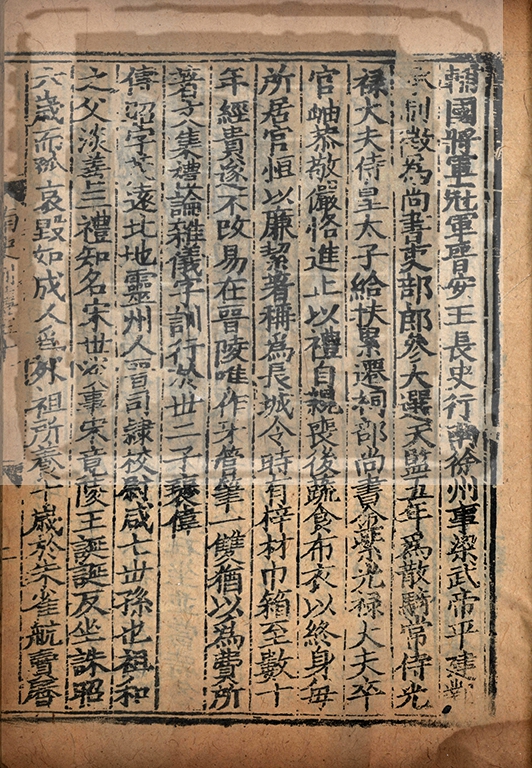 輔國將軍冠軍晉安王長史行南徐州事梁武帝平建鄴
承制徵為尚書吏部郎參大選天監五年為散騎常侍光
祿大夫侍皇太子給扶累遷祠部尚書金紫光祿大夫卒
官岫恭敬儼恪進止以禮自親喪後蔬食布衣以終身每
所居官恒以廉絜著稱為長城令時有梓材巾箱至數十
年經貴遂不改易在晉陵唯作牙管筆一雙猶以為費所
著文集禮論雜儀字訓行於丗二子褒偉
傅昭字茂遠北地靈州人晉司隸校尉咸七丗孫也祖和
之父淡善三禮知名宋丗淡事宋竟陵王誕誕反坐誅昭
六歲而孤哀毀如成人為外祖所養十歲於朱雀航賣曆